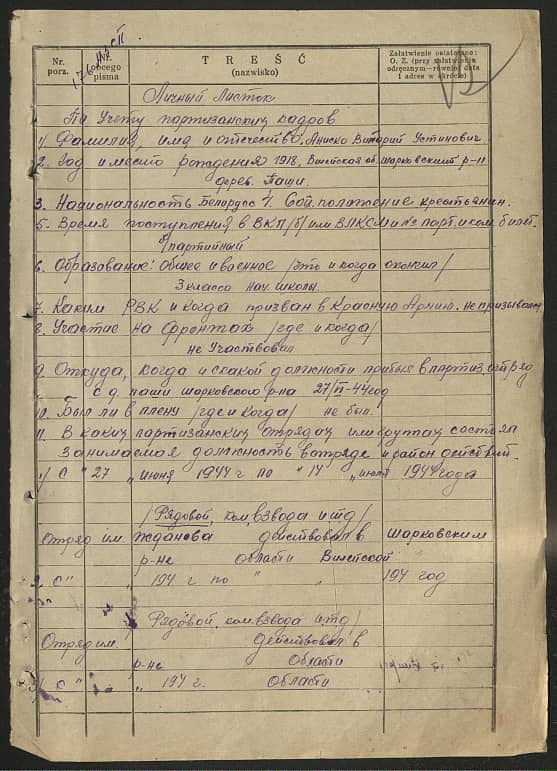 Nr. porz.
Nr. obcego pisma
TREŚĆ
(nazwisko)
Załatwienie ostateczne:
O. Z. (przy załatwieniu
odręcznym – również data
i adres w skrócie)
Личный Листок
По Учету партизанских кадров
1/ Фамилия, имя и отчество: Аниско Виторий Устинович
2. Год и место рождения 1918, Вилейская об. Шарковский р-н
дерев. Паши
3. Национальность Белорусс 4. Соц. положение крестьянин.
5. Время поступления в ВКП/б/ или ВЛКСМ и № парт. и ком. билет.
б/партийный
6. Образование: Общее и военное /что и когда окончил/
3 класса нач. школы.
7. Каким РВК и когда призван в Красную Армию. не призывался
8. Участие на фронтах /где и когда/
не Участвовал
9. Откуда, когда и с какой должности прибыл в партиз. отряд
С д. паши шарковского р-на 27/VI-44 год
10. Был ли в плену /где и когда/ не был.
11. В каких партизанских отрядах или группах состоял
занимаемая должность в отряде и район действий.
1/ С "27 " июня 1944 г по "14 " июля 1944 года
/Рядовой, ком. взвода и т д/
Отряд им. Жданова действовал в Шарковским
р-не области Вилейской
2. С " " 194 г по " " 194 год
/Рядовой. ком. взвода и т д/
Отряд им. действовал в
р-не Области
С " " 194 г. Области